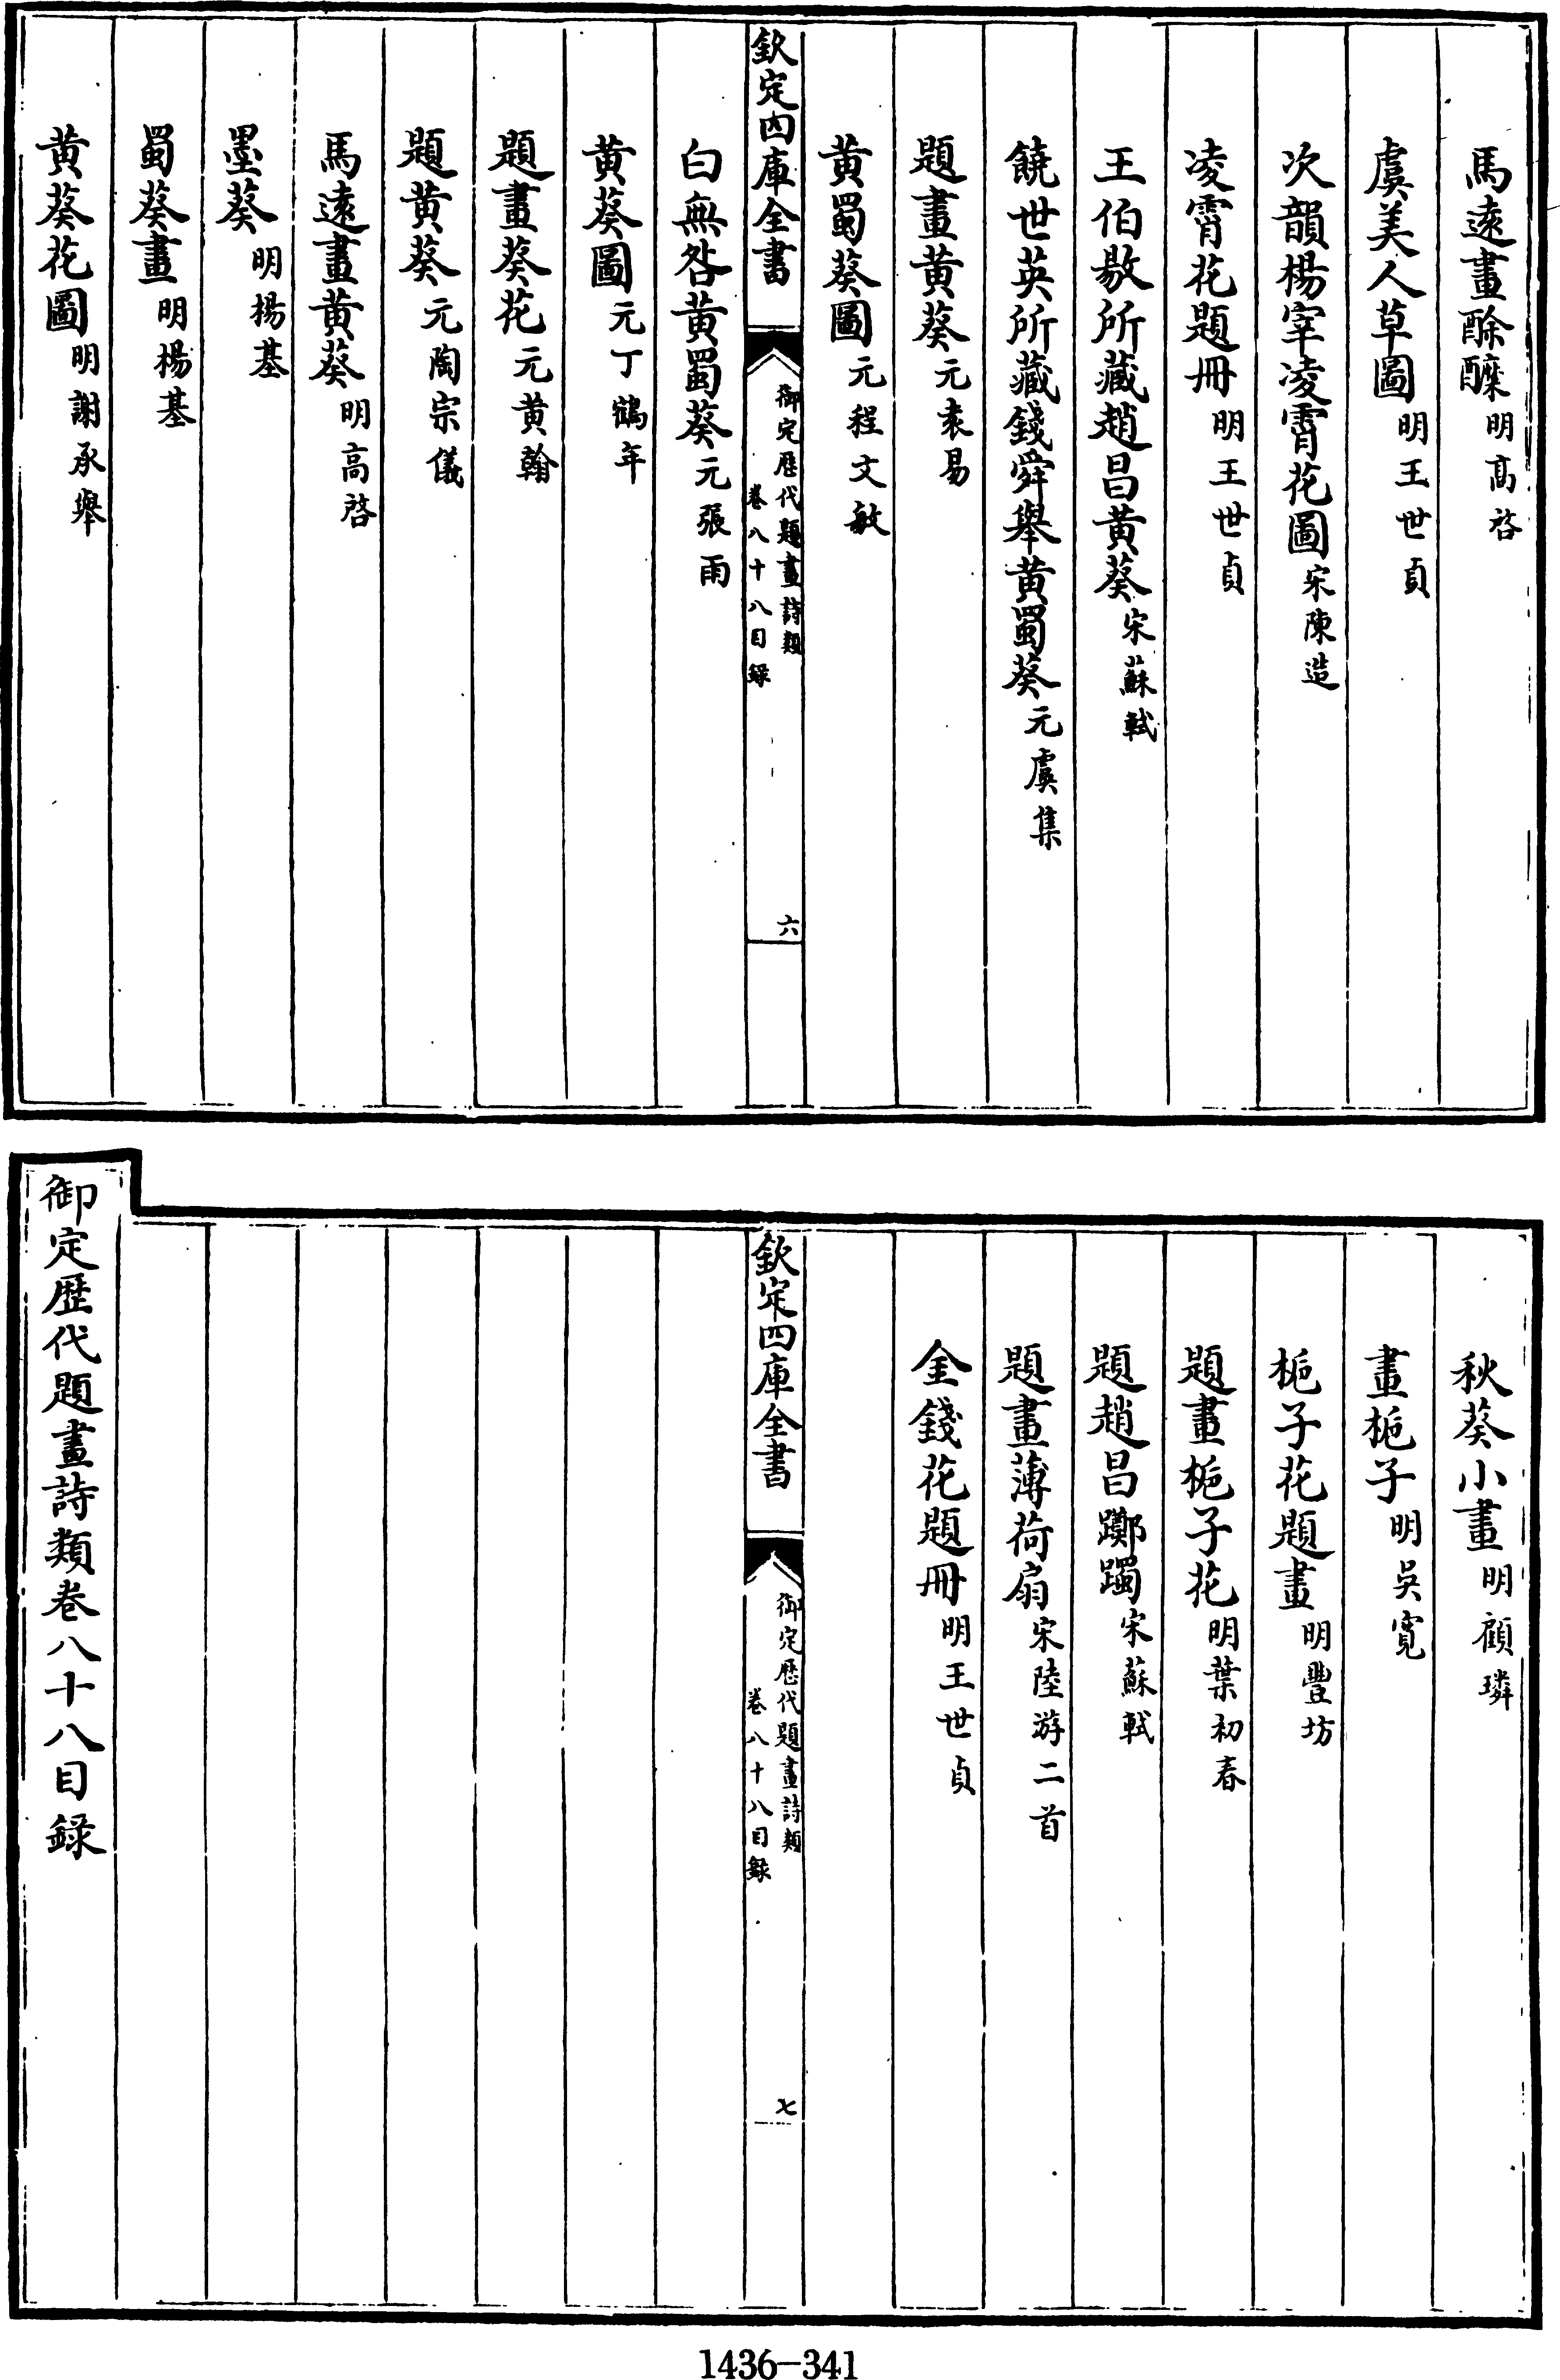 馬遠畫酴醿明高啓
虞美人草圖明王世貞
次韻楊宰凌霄花圖宋陳造
凌霄花題冊明王世貞
王伯敭所藏趙昌黃葵宋蘇軾
饒世英所藏錢舜舉黃蜀葵元虞集
題畫黃葵元袁易
黃蜀葵圖元程文敏
欽定四庫全書
御定歷代題畫詩類
卷八十八目錄
六
白無咎黃蜀葵元張雨
黃葵圖元丁鶴年
題畫葵花元黃翰
題黃葵元陶宗儀
馬遠畫黃葵明高啓
墨葵明楊基
蜀葵畫明楊基
黃葵花圖明謝承舉
秋葵小畫明顧璘
畫梔子明吳寬
梔子花題畫明豐坊
題畫梔子花明葉初春
題趙昌躑躅宋蘇軾
題畫薄荷扇宋陸游二首
金錢花題冊明王世貞
欽定四庫全書
御定歷代題畫詩類
卷八十八目錄
七
御定歷代題畫詩類卷八十八目錄
1436-341